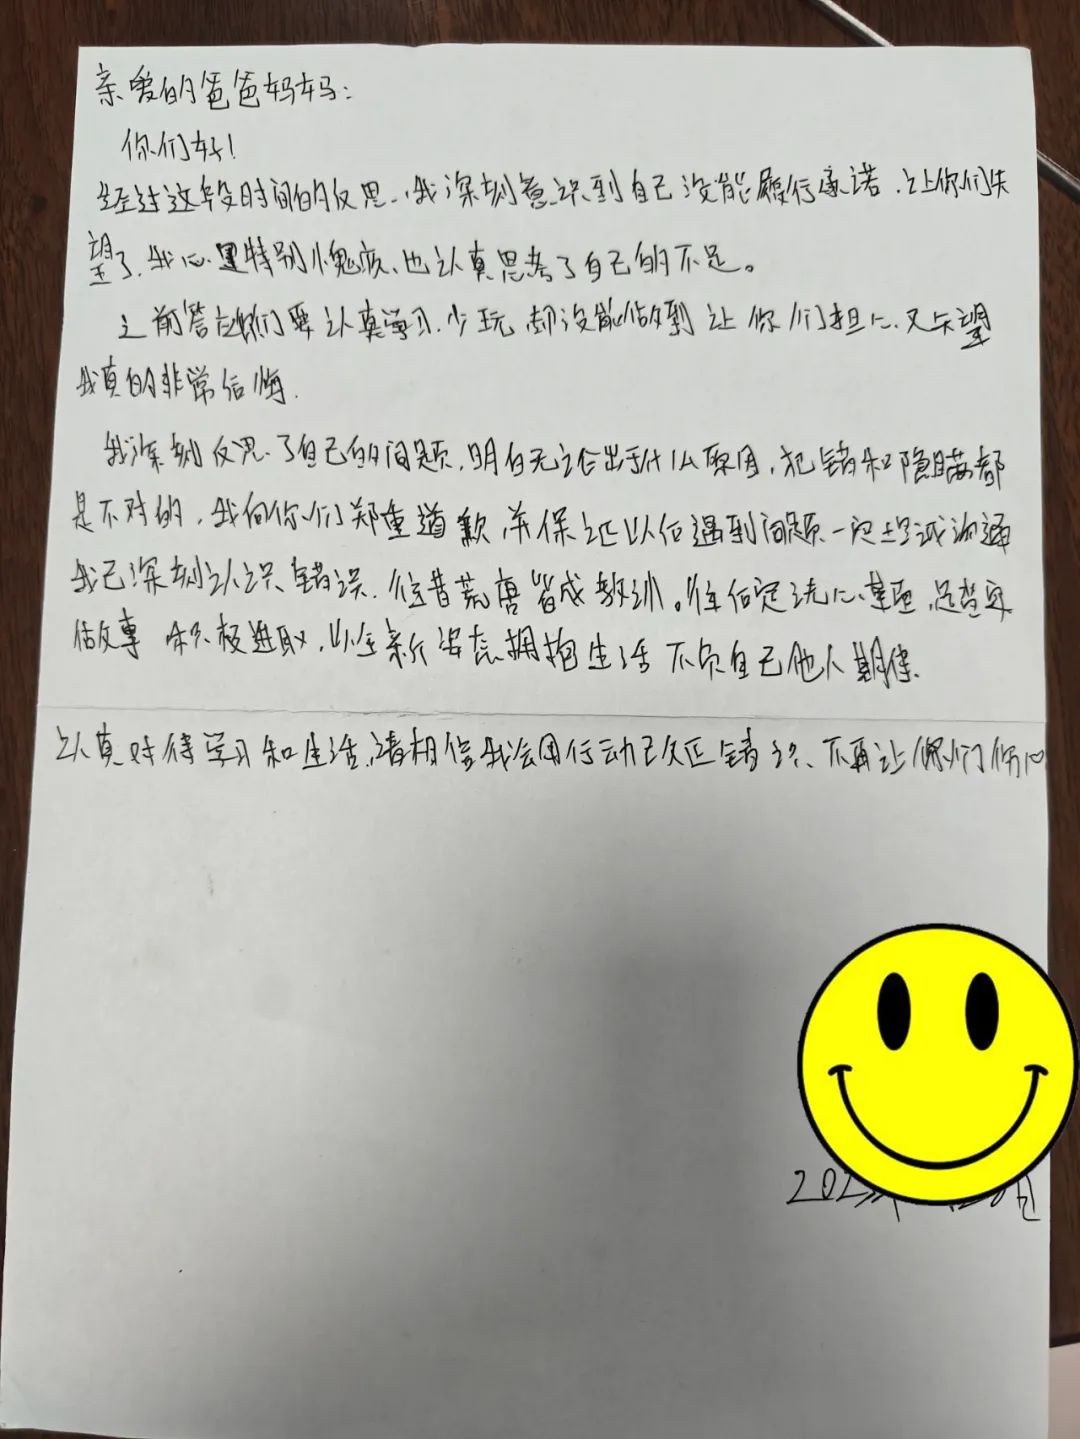 亲爱的爸爸妈妈:
你们好!
经过这段时间的反思,我深刻意识到自己没能履行承诺,让你们失
望了,我心里特别愧疚,也认真思考了自己的不足。
之前答应你们要认真学习,少玩,却没能做到 让你们担心,又失望
我真的非常后悔.
我深刻反思了自己的问题,明白无论出于什么原因,犯错和隐瞒都
是不对的,我向你们郑重道歉,并保证以后遇到问题一定坦诚沟通
我已深刻认识错误,往昔荒唐皆成教训。往后定洗心革面,踏实
做事 积极进取,以全新姿态拥抱生活 不负自己他人期待.
认真对待学习和生活,请相信我会用行动 错 不再让你们伤心
202